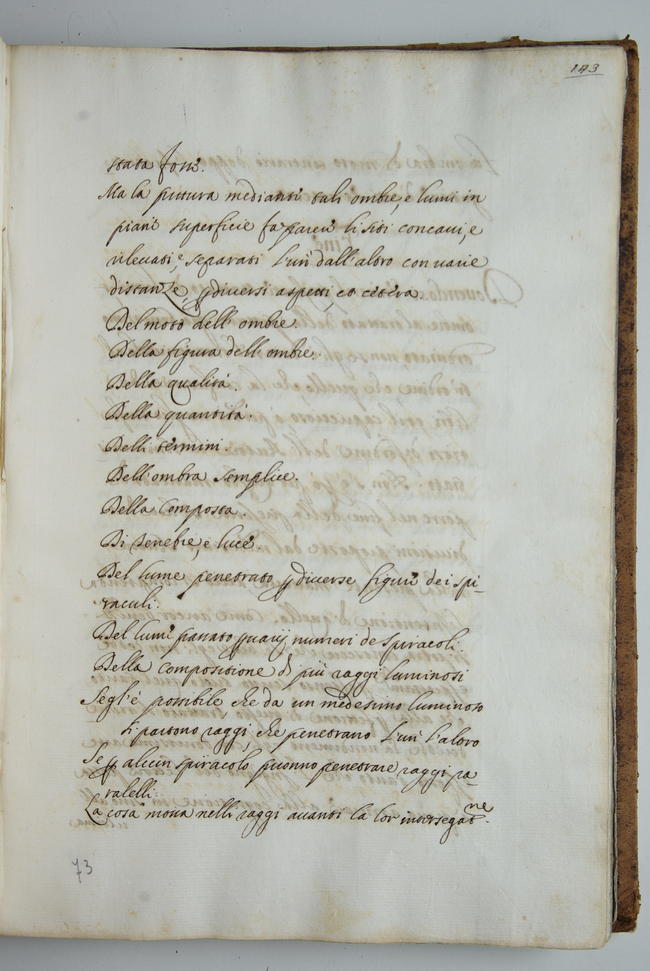 143
stata forsi.
Ma la pittura mediante tali ombre, e lumi in
piane superficie fa parere li siti concaui, e
rileuati, e separati l'un dall'altro con uarie
distanze, p diuersi aspetti, et cetera.
Del moto dell'ombre.
Della figura dell'ombre.
Della qualità.
Della quantità.
Delli termini.
Dell'ombra semplice.
Della composta.
Di tenebre, e luce.
Del lume penetrato p diuerse figure dei spi-
raculi.
Del lume passato p uarij numeri de spiracoli.
Della composizione di più raggi luminosi
Segl'è possibile, che da un medesimo luminoso
si partono raggi, che penetrano l'un l'altro
Se p alcun spiracolo puonno penetrare raggi pa-
ralelli.
La cosa mossa nelli raggi auanti la lor intersegat.ne
73